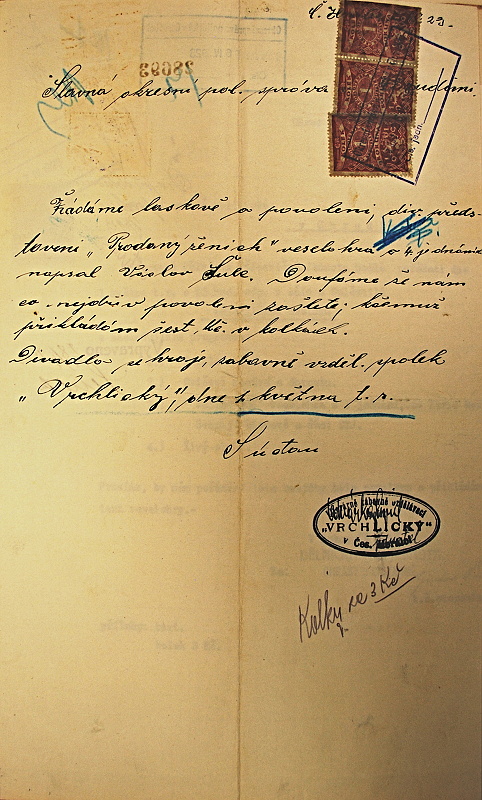 Slavná okresní pol. správa
Žádáme laskavě o povolení, div. předs-
tavení „Prodaný ženich" veselohra o 4 jednáních
napsal Václav Šulc. Doufáme že nám
co nejdřív povolení zašlete; k čemuž
přikládám šest Kč. v kolkách.
Divadlo se hraje, zábavně vzděl. spolek
„Vrchlický", dne května t. r.
S úctou
„VRCHLICKÝ"
v Čes.
Kolky za 3 Kč